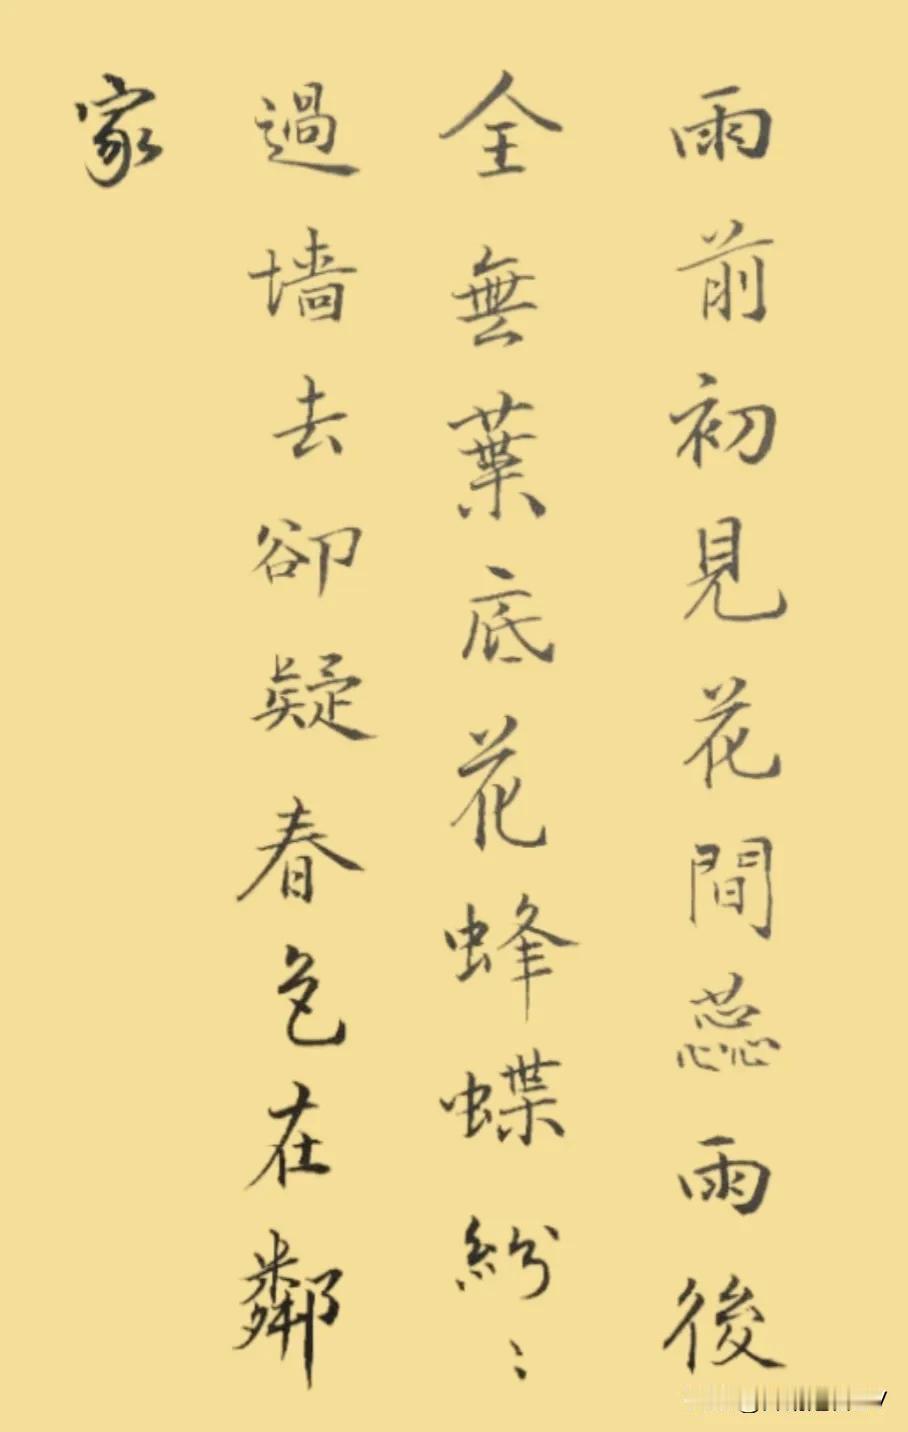 雨前初見花間蕊雨後
全無葉底花蜂蝶紛〻
過墙去卻疑春色在鄰
家